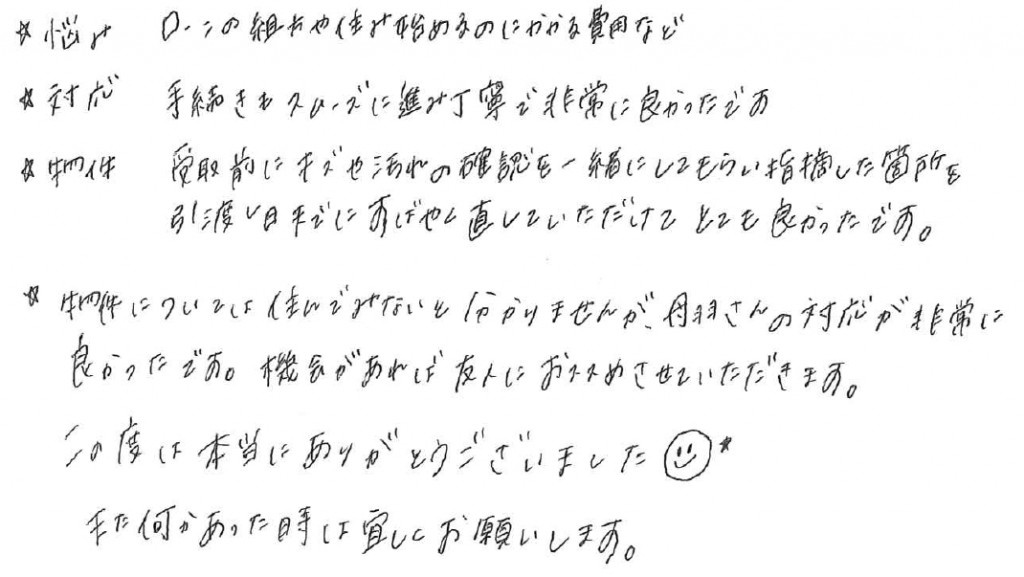 ☆悩み ローンの組み方や住み始めるのにかかる費用など
☆対応 手続きもスムーズに進み丁寧で非常に良かったです
☆物件 受取前にキズや汚れの確認を一緒にしてもらい指摘した箇所を
引渡し日までにすばやく直していただけてとても良かったです。
☆物件については住んでみないと分かりませんが、丹羽さんの対応が非常に
良かったです。機会があれば友人におススめさせていただきます。
この度は本当にありがとうございました☺☆
また何かあった時は宜しくお願いします。